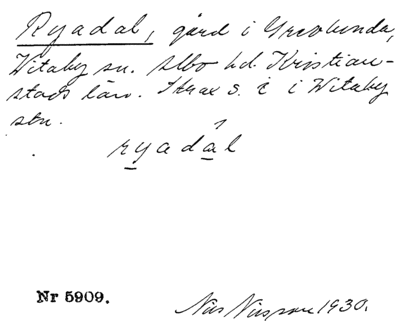 Ryadal, gård i Grevlunda,
Witaby sn. Albo hd. Kristian-
stads län. Strax S. i Witaby
sn.
ryadal
Nr 5909.
Nils Nilsson 1930.